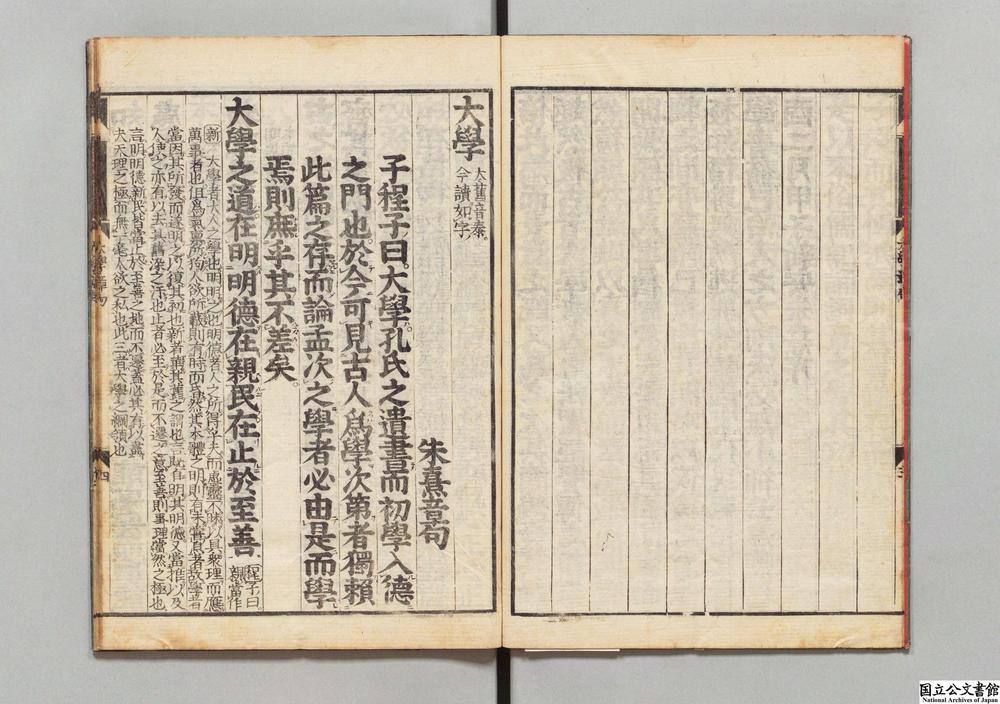 大學 大舊音泰。
今讀如字
朱熹章句
子程子曰。大學。孔氏之遺書。而初學入德
之門也。於今可見古人爲學次第者。獨賴
此篇之存。而論孟次之。學者必由是而學
焉。則庶乎其不差矣。
大學之道。在明明德。在親民。在止於至善。程子曰
親當作
新 大學者大人之學也明明之也明德者人之所得乎天而虛靈不昧以具衆理而應
萬事者也但爲氣稟所拘人欲所蔽則有時而昏然其本體之明則有未嘗息者故學者
當因其所發而遂明之以復其初也新者革其舊之謂也言既自明其明德又當推以及
人使之亦有以去其舊染之汙也止者必至於是而不遷之意至善則事理當然之極也
言明明德新民皆當止於至善之地而不遷蓋必其有以盡
夫天理之極而無一毫人欲之私也此三者大學之綱領也
四
国立公文書館
National Archives of Japan